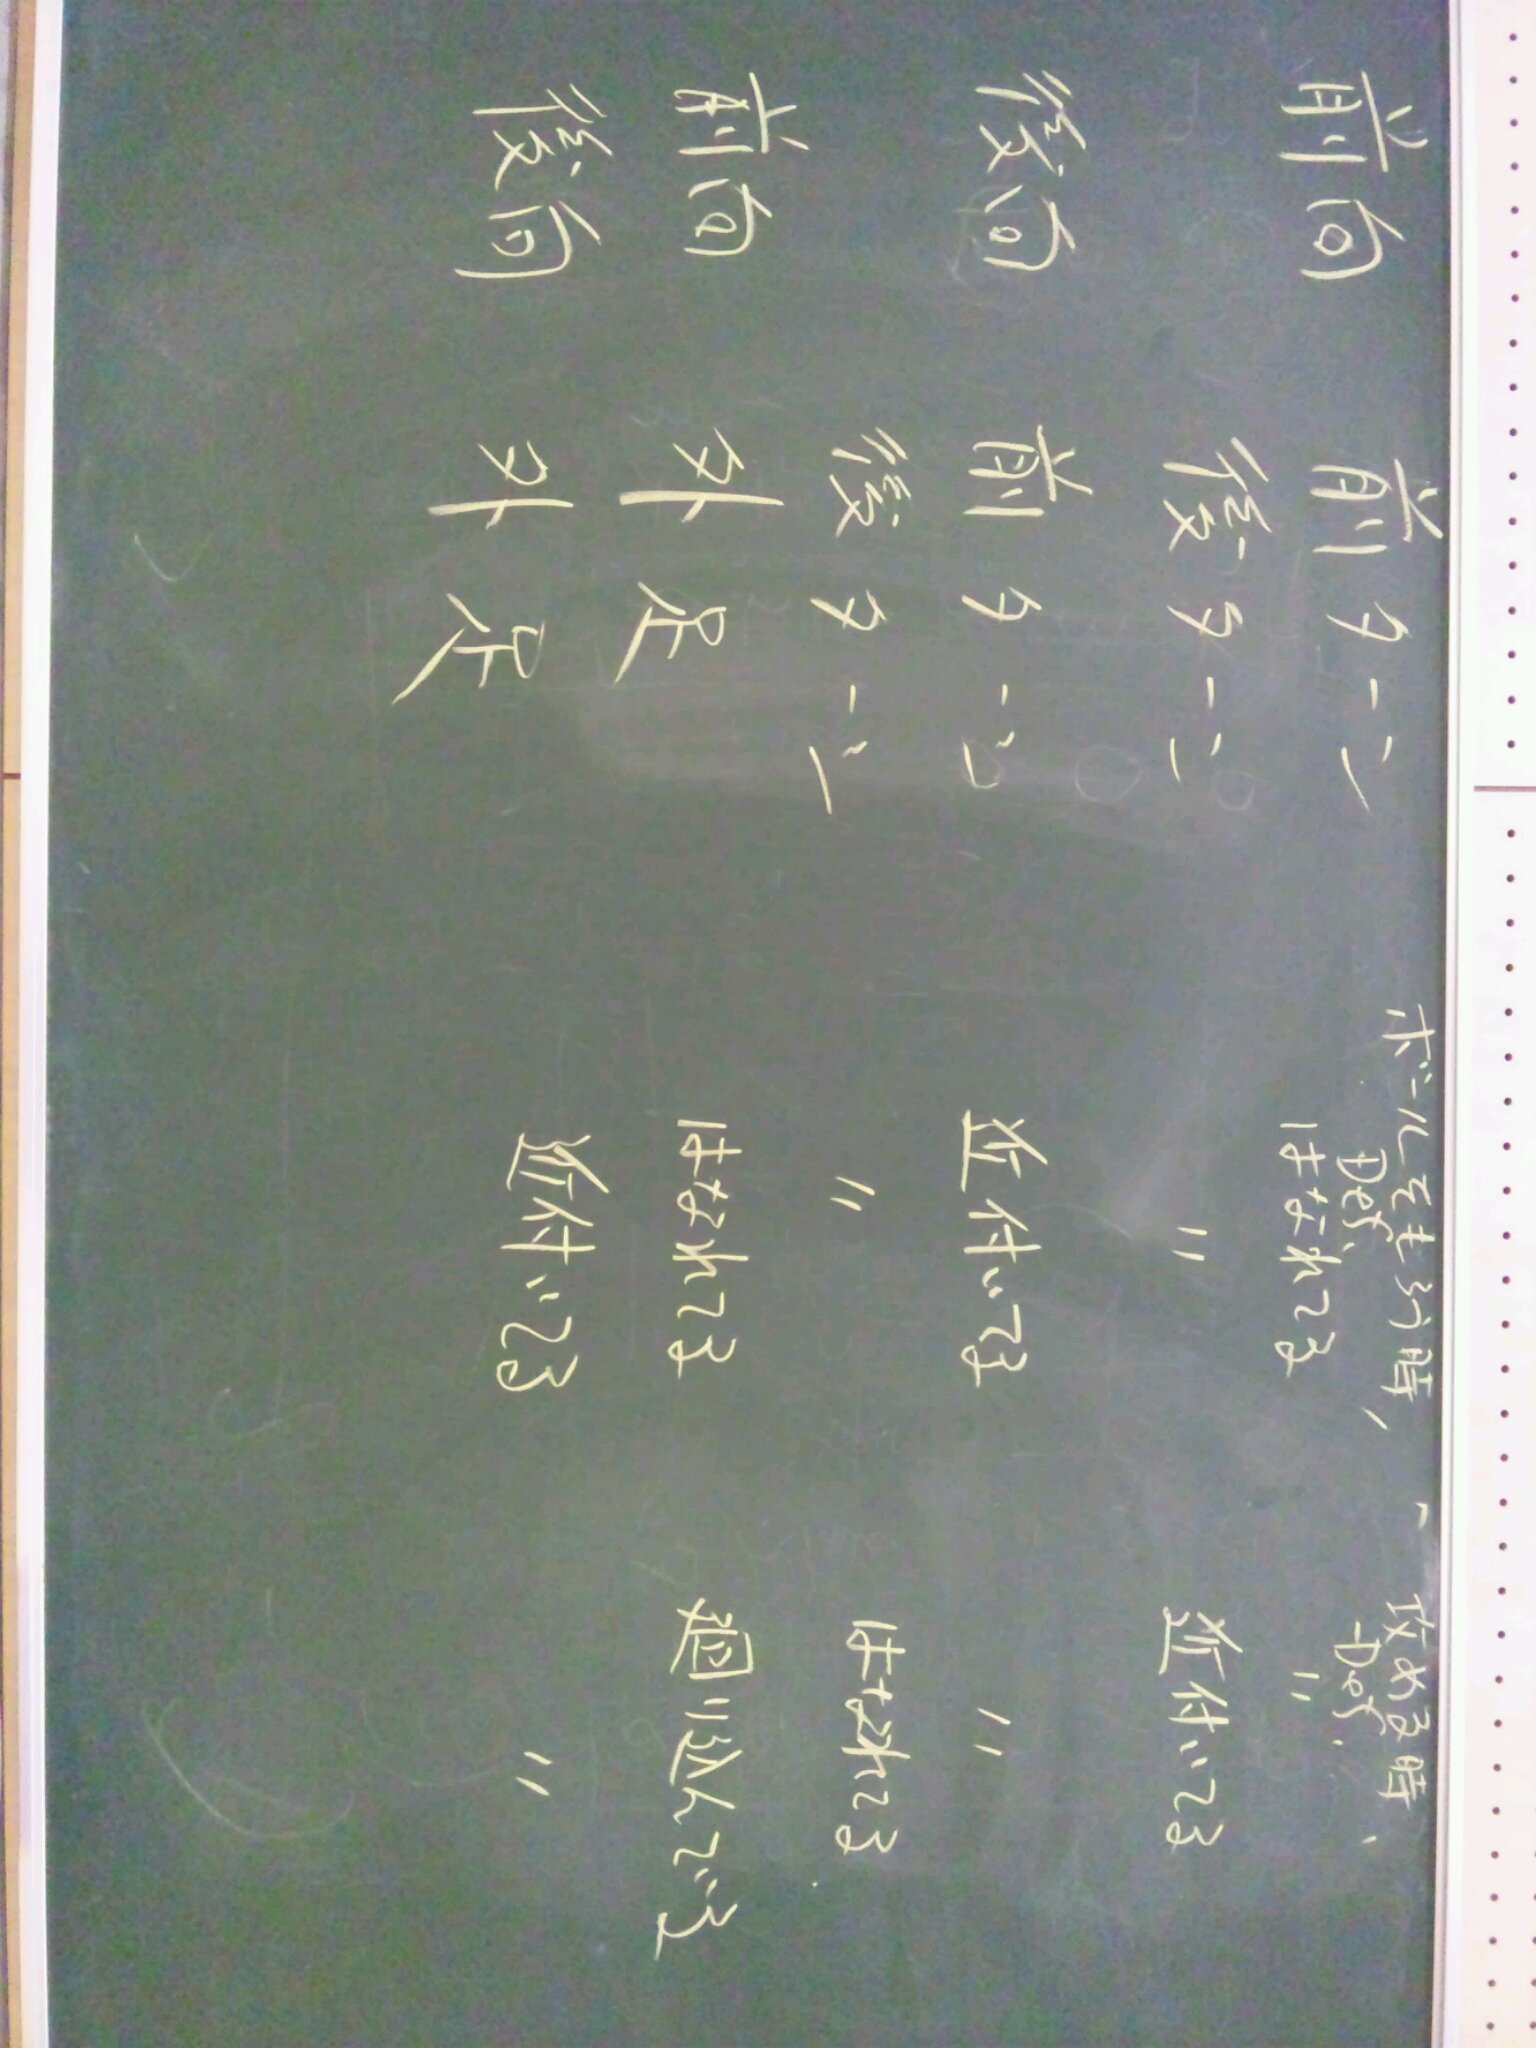 ボールをもらう時、 攻める時、
Def. Def.
前向 前ターン はなれてる 〃
後ターン 〃 近付いてる
後向 前ターン 近付いてる 〃
後ターン 〃 はなれてる
前向 外足 はなれてる 廻り込んでいる
後向 外足 近付いてる 〃